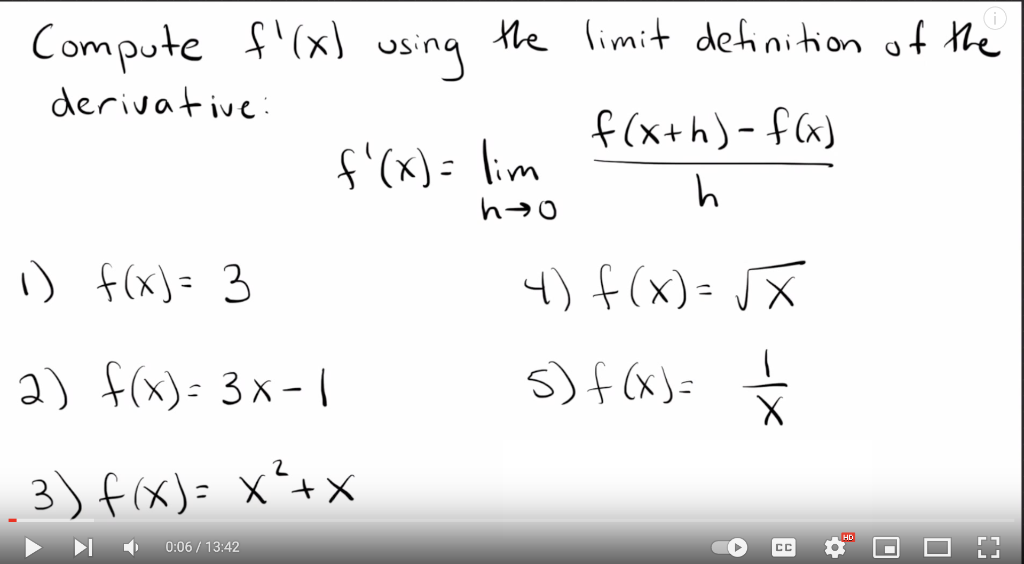 Compute f'(x) using the limit definition of the
derivative:
f'(x) = lim h→0 f(x+h) - f(x) / h
1) f(x) = 3
2) f(x) = 3x - 1
3) f(x) = x² + x
4) f(x) = √x
5) f(x) = 1/x
0:06 / 13:42
CC
HD